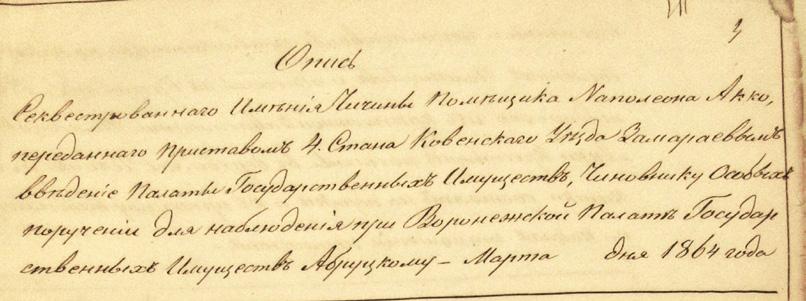 3
Опись
Секвестрованнаго Имѣнія Чичины Помѣщика Наполеона Акко,
переданнаго Приставомъ 4. Стана Ковенскаго Уѣзда Замараевымъ
ввѣденіе Палаты Государственныхъ Имуществъ, Чиновнику Особыхъ
порученій для наблюденія при Воронежской Палатѣ Государ
ственныхъ Имуществъ Абруцкому – Марта дня 1864 года